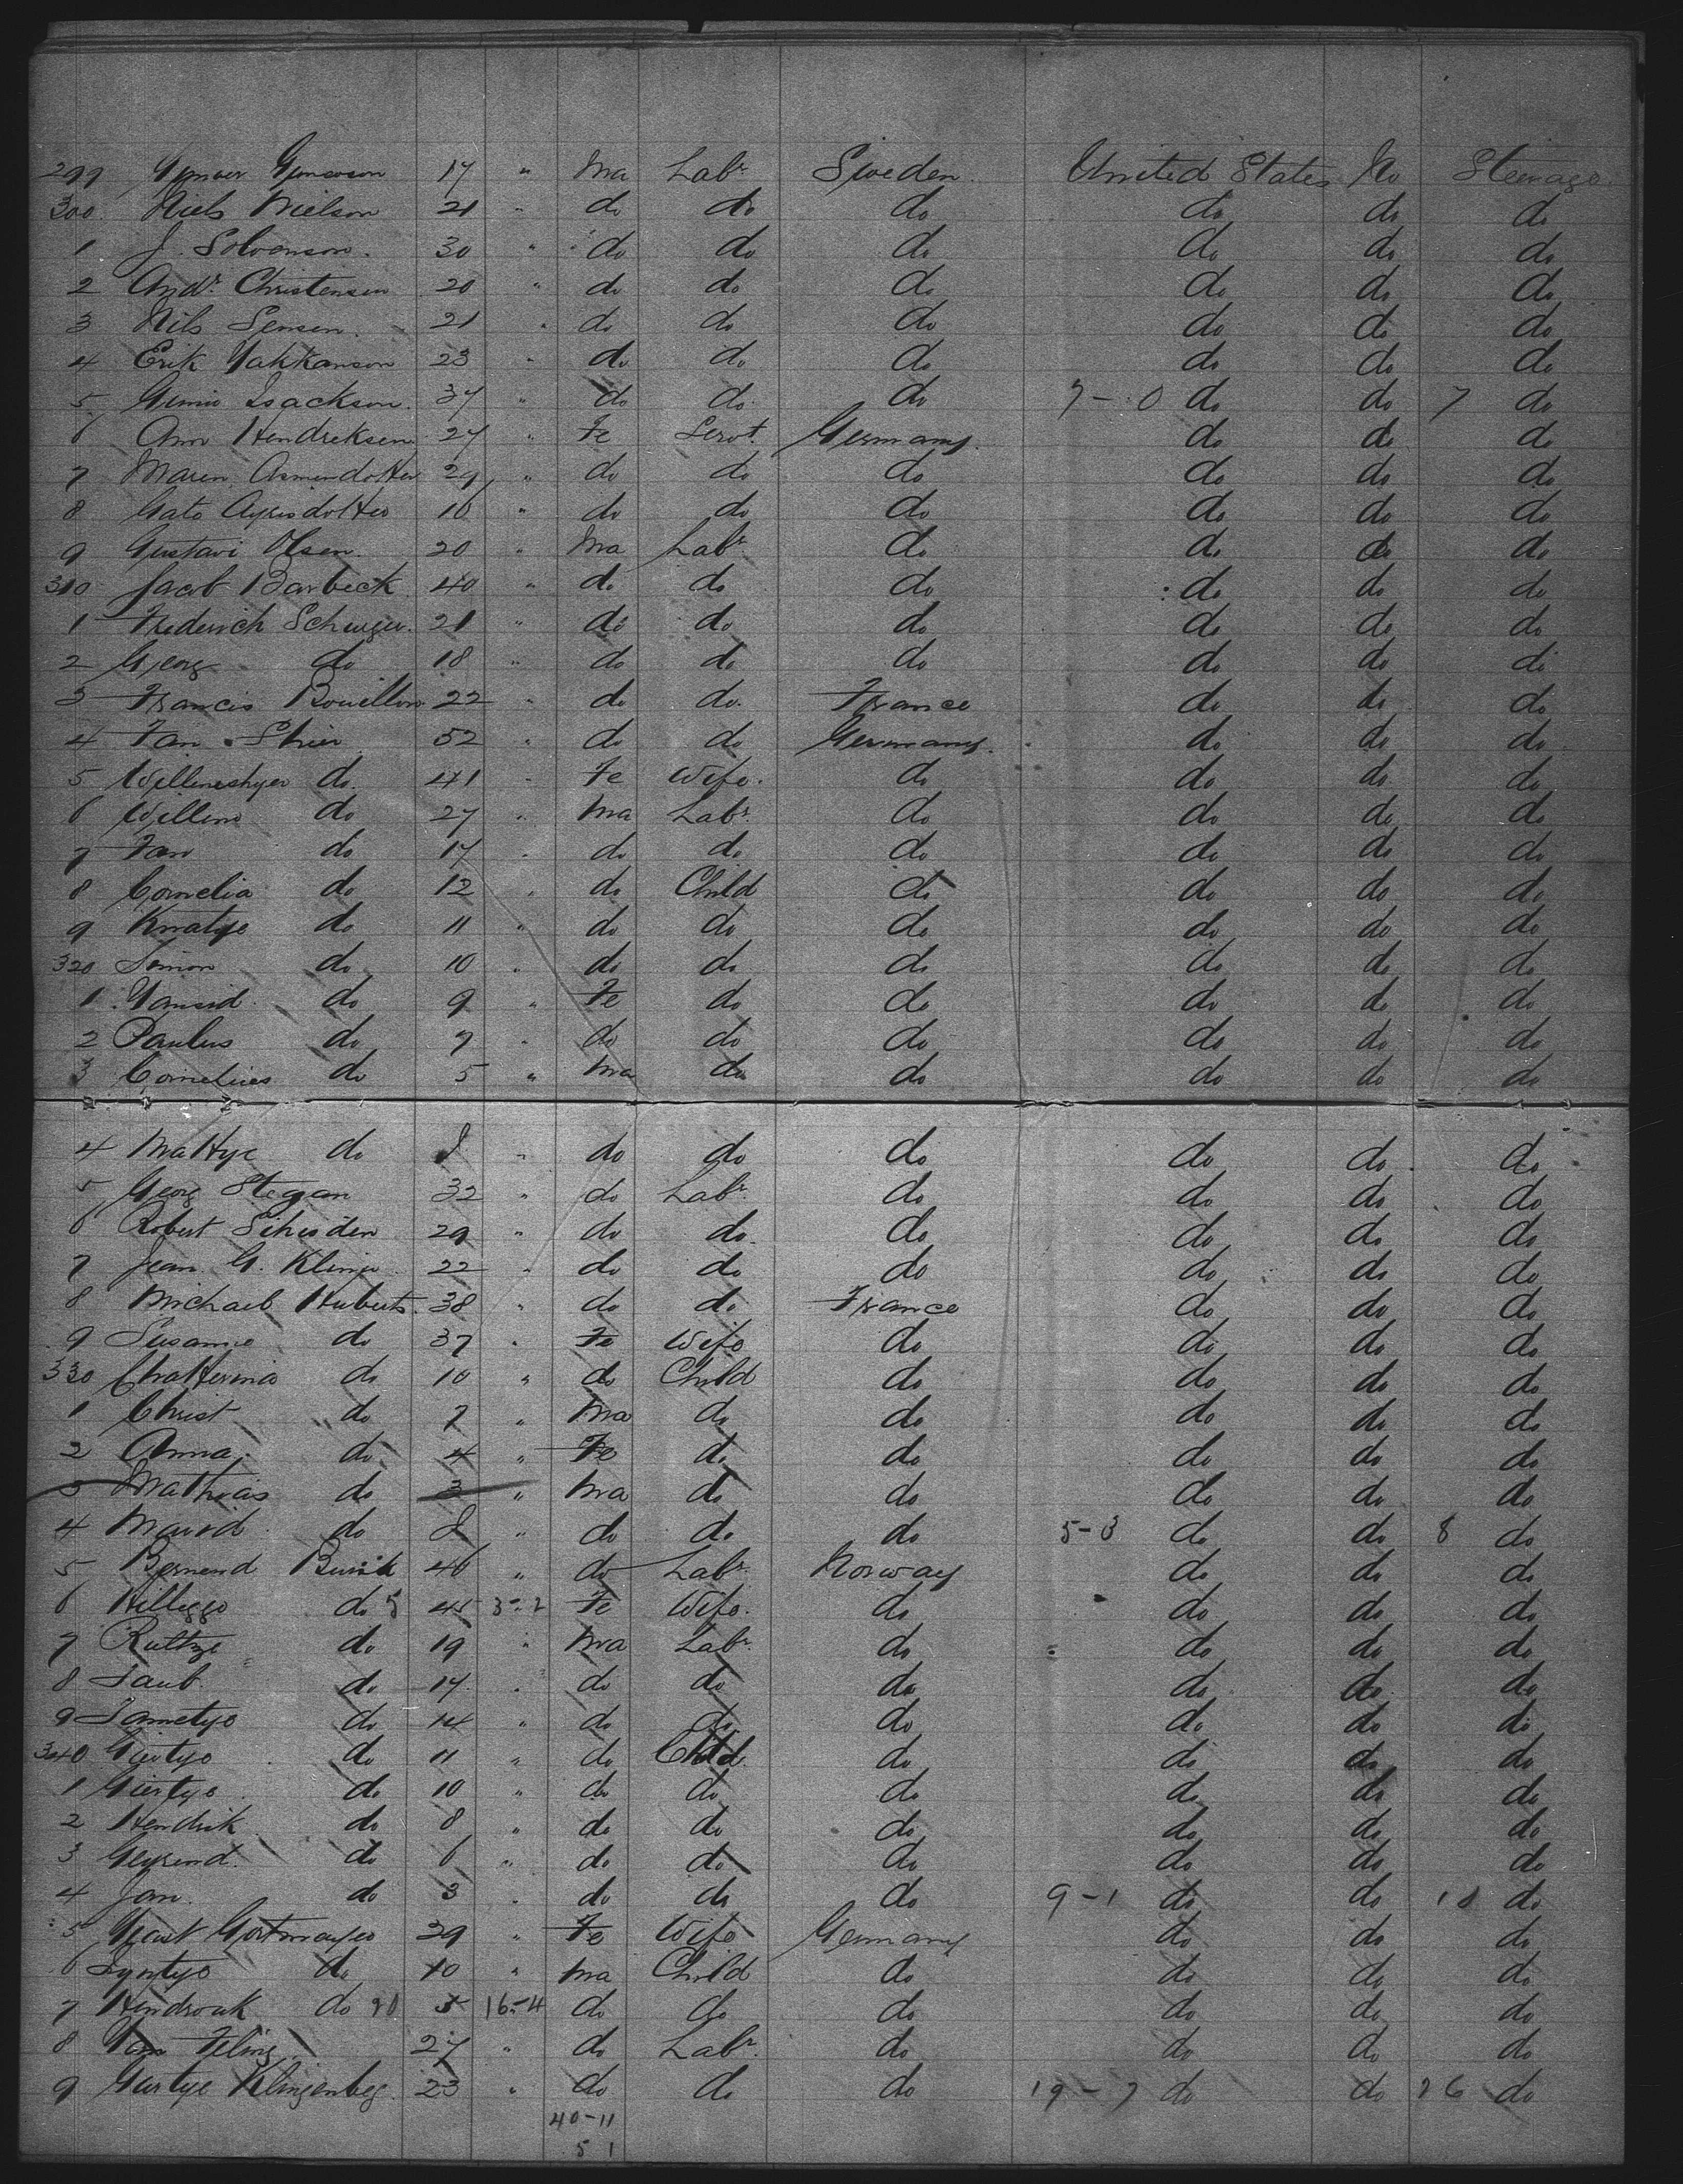 299 Gunver Gunsoson 17 " Ma Labr Sweden United States No Steerage
300 Niels Nielson 21 " do do do do do do
1 J. Solvenson 30 " do do do do do do
2 Andr. Christensen 20 " do do do do do do
3 Nils Jensen 21 " do do do do do do
4 Erik Hakkanson 23 " do do do do do do
5 Isackson 37 " do do do 7-0 do do 7 do
6 Ann Hendreksen 27 " Fe Servt. Germany do do do
7 Maren Asmendotter 29 " do do do do do do
8 Gato 10 " do do do do do do
9 Gustavi Olsen 20 " Ma Labr do do do do
310 Jacob Barbeck 40 " do do do do do do
1 Frederich 21 " do do do do do do
2 Georg do 18 " do do do do do do
3 Francis Bouillon 22 " do do France do do do
4 Jan 52 " do do Germany do do do
5 do 41 " Fe Wife do do do do
6 Willem do 27 " Ma Labr do do do do
7 Jan do 17 " do do do do do do
8 Cornelia do 12 " do Child do do do do
9 do 11 " do do do do do do
320 Simon do 10 " do do do do do do
1 do 9 " Fe do do do do do
2 Paulus do 7 " do do do do do do
3 Cornelius do 5 " Ma do do do do do
4 Mattye do " do do do do do do
5 Georg Stegan 32 " do Labr do do do do
6 Robert 29 " do do do do do do
7 Jean G. 22 " do do do do do do
8 Michael Huberts 38 " do do France do do do
9 Susanne do 37 " Fe Wife do do do do
330 Chatterina do 10 " do Child do do do do
1 Christ do 7 " Ma do do do do do
2 Anna do 4 " Fe do do do do do
3 Mathias do 3 " Ma do do do do do
4 do " do do do 5-3 do do 8 do
5 Bernend 46 " do Labr Norway do do do
6 do 5 45 3-2 Fe Wife do do do do
7 do 19 " Ma Labr do do do do
8 do 17 " do do do do do do
9 do 14 " do do do do do do
340 do 11 " do Child do do do do
1 do 10 " do do do do do do
2 Hendrik do 8 " do do do do do do
3 do 6 " do do do do do do
4 Jan do 3 " do do do 9-1 do do 10 do
5 39 " Fe Wife Germany do do do
6 do 10 " Ma Child do do do do
7 do 20 3 16-4 do do do do do do
8 27 " do Labr do do do do
9 Klingenbeg 23 " do do do 19-7 do do 26 do
40-11
5 1